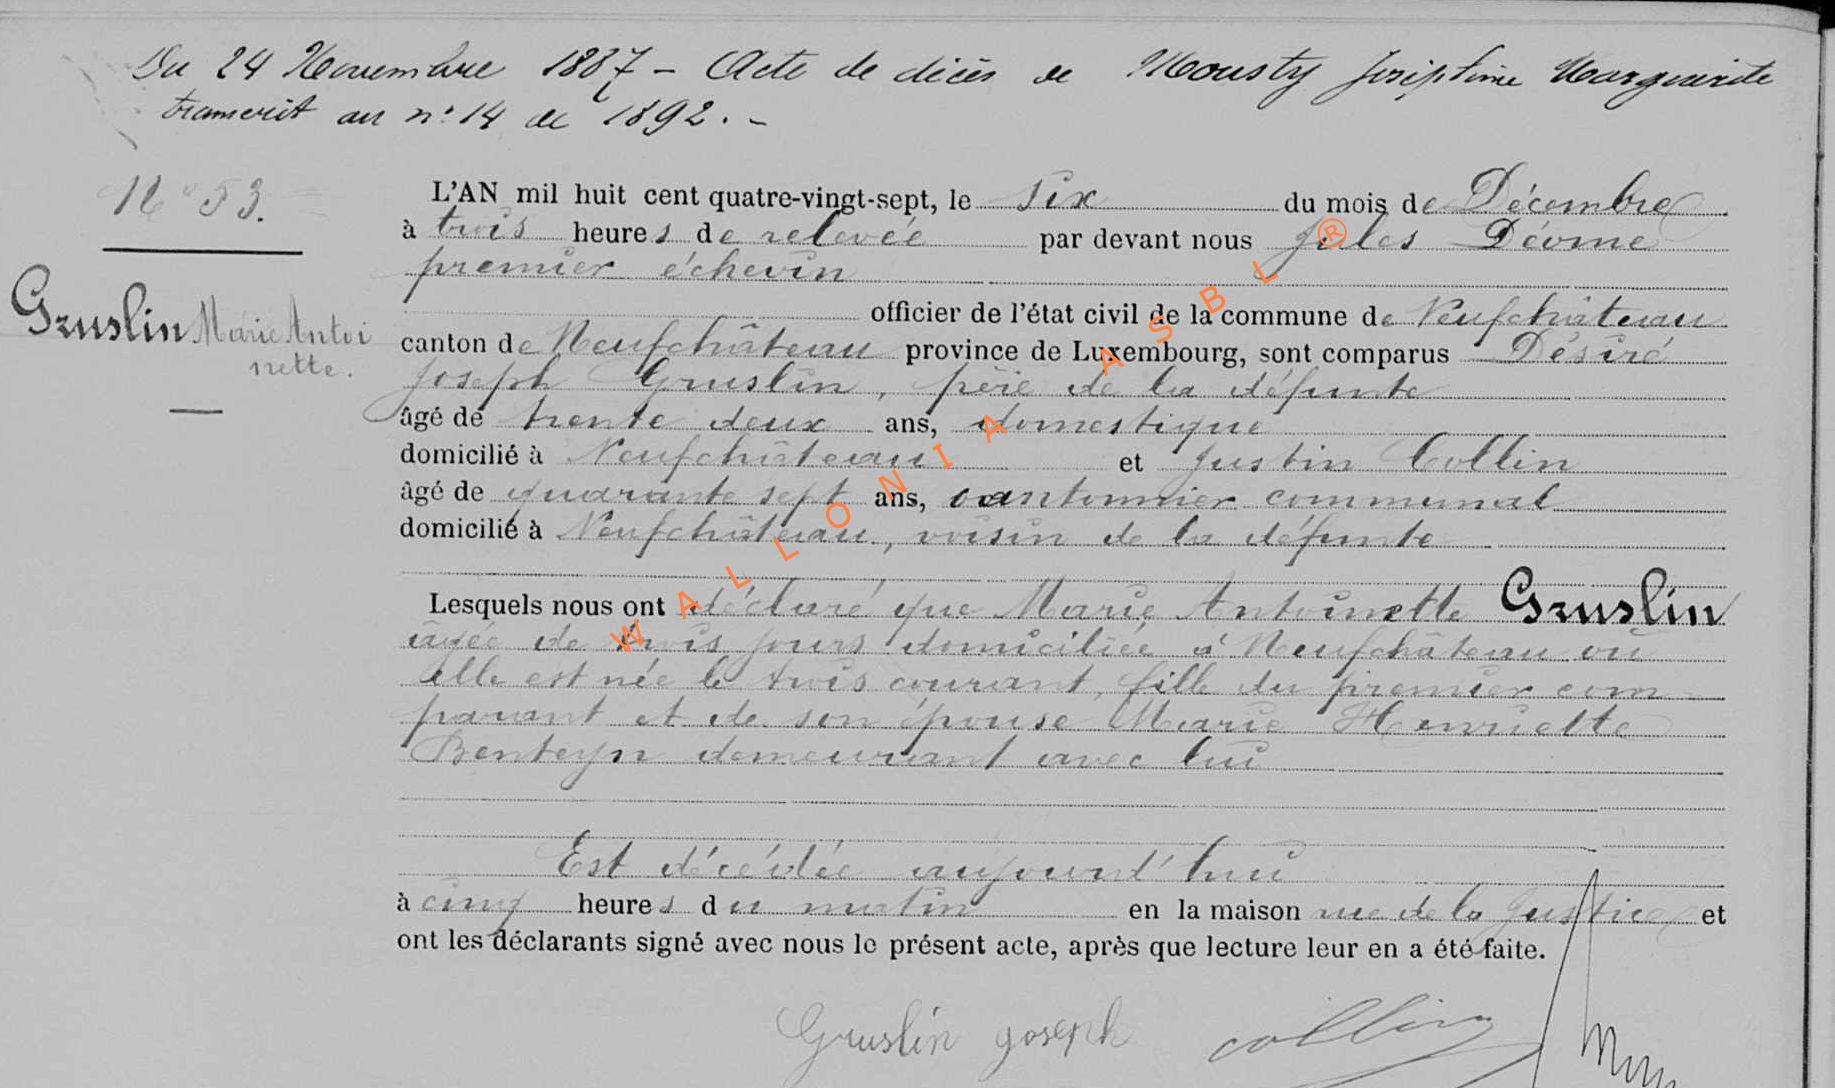 Du 24 Novembre 1887 – Acte de décès de Mousty Joséphine Marguerite
transcrit au n° 14 de 1892. –
N° 53.
Gruslin Marie Antoi
nette.
L'AN mil huit cent quatre-vingt-sept, le six du mois de Décembre
à trois heures de relevée par devant nous Jules Déome
premier échevin
officier de l'état civil de la commune de Neufchâteau
canton de Neufchâteau province de Luxembourg, sont comparus Désiré
Joseph Gruslin, père de la défunte
âgé de trente deux ans, domestique
domicilié à Neufchâteau et Justin Collin
âgé de quarante sept ans, cantonnier communal
domicilié à Neufchâteau, voisin de la défunte
Lesquels nous ont déclaré que Marie Antoinette Gruslin
âgée de trois jours domiciliée à Neufchâteau où
elle est née le trois courant, fille du premier com-
parant et de son épouse Marie Henriette
Benteyn demeurant avec lui
Est décédée aujourd'hui
à cinq heures du matin en la maison rue de la Justice et
ont les déclarants signé avec nous le présent acte, après que lecture leur en a été faite.
Gruslin joseph collin
WALLONIA ASBL ®